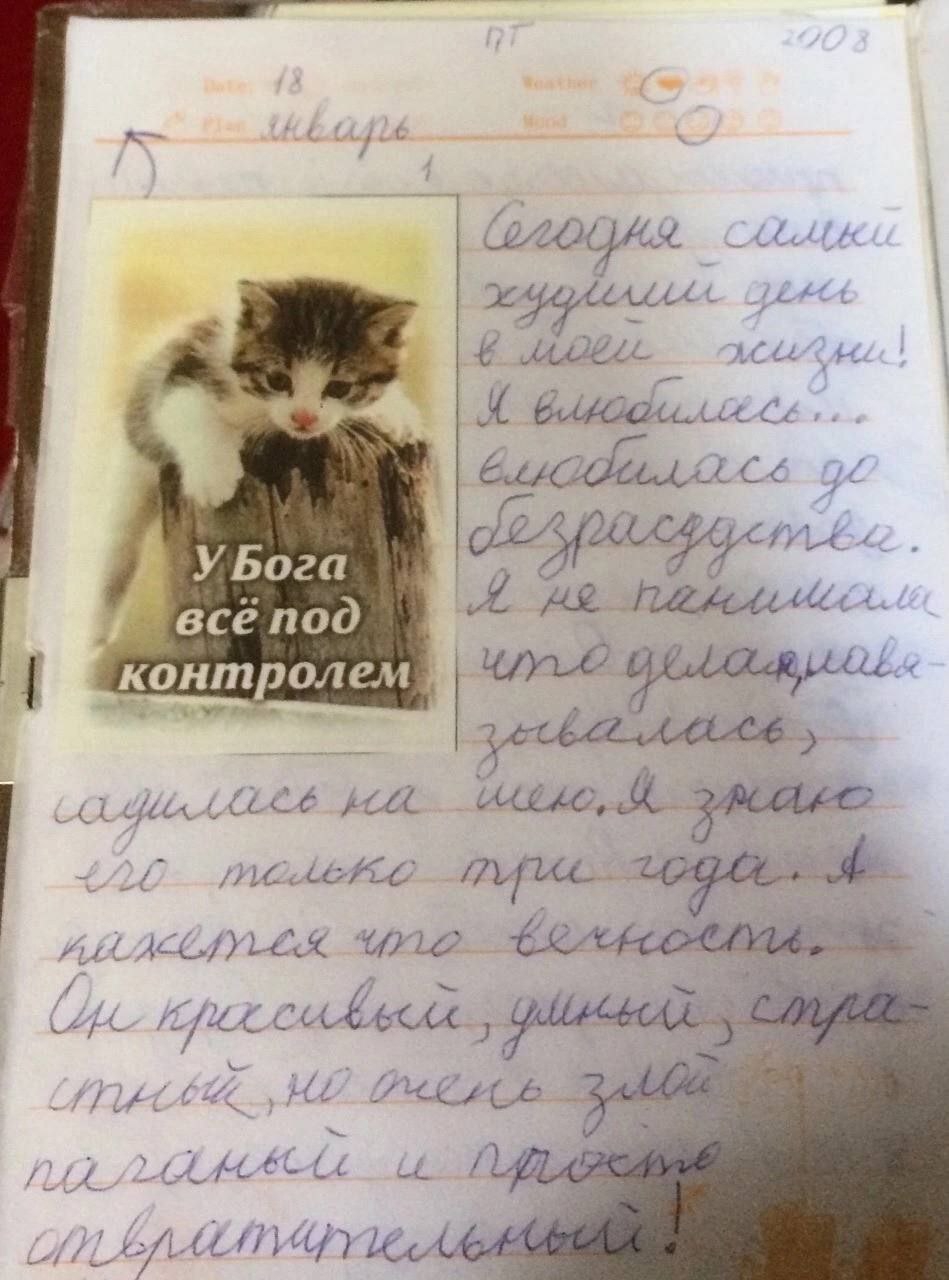 ПТ 2008
Date: 18 Weather
Plan январь Mood
1
У Бога
всё под
контролем
Сегодня самый
худший день
в моей жизни!
Я влюбилась...
влюбилась до
безрасудства.
Я не панимала
что делала, навя-
зывалась,
садилась на шею. Я знаю
его только три года. А
кажется что вечность.
Он красивый, умный, стра-
стный, но очень злой
паганый и просто
отвратительный!